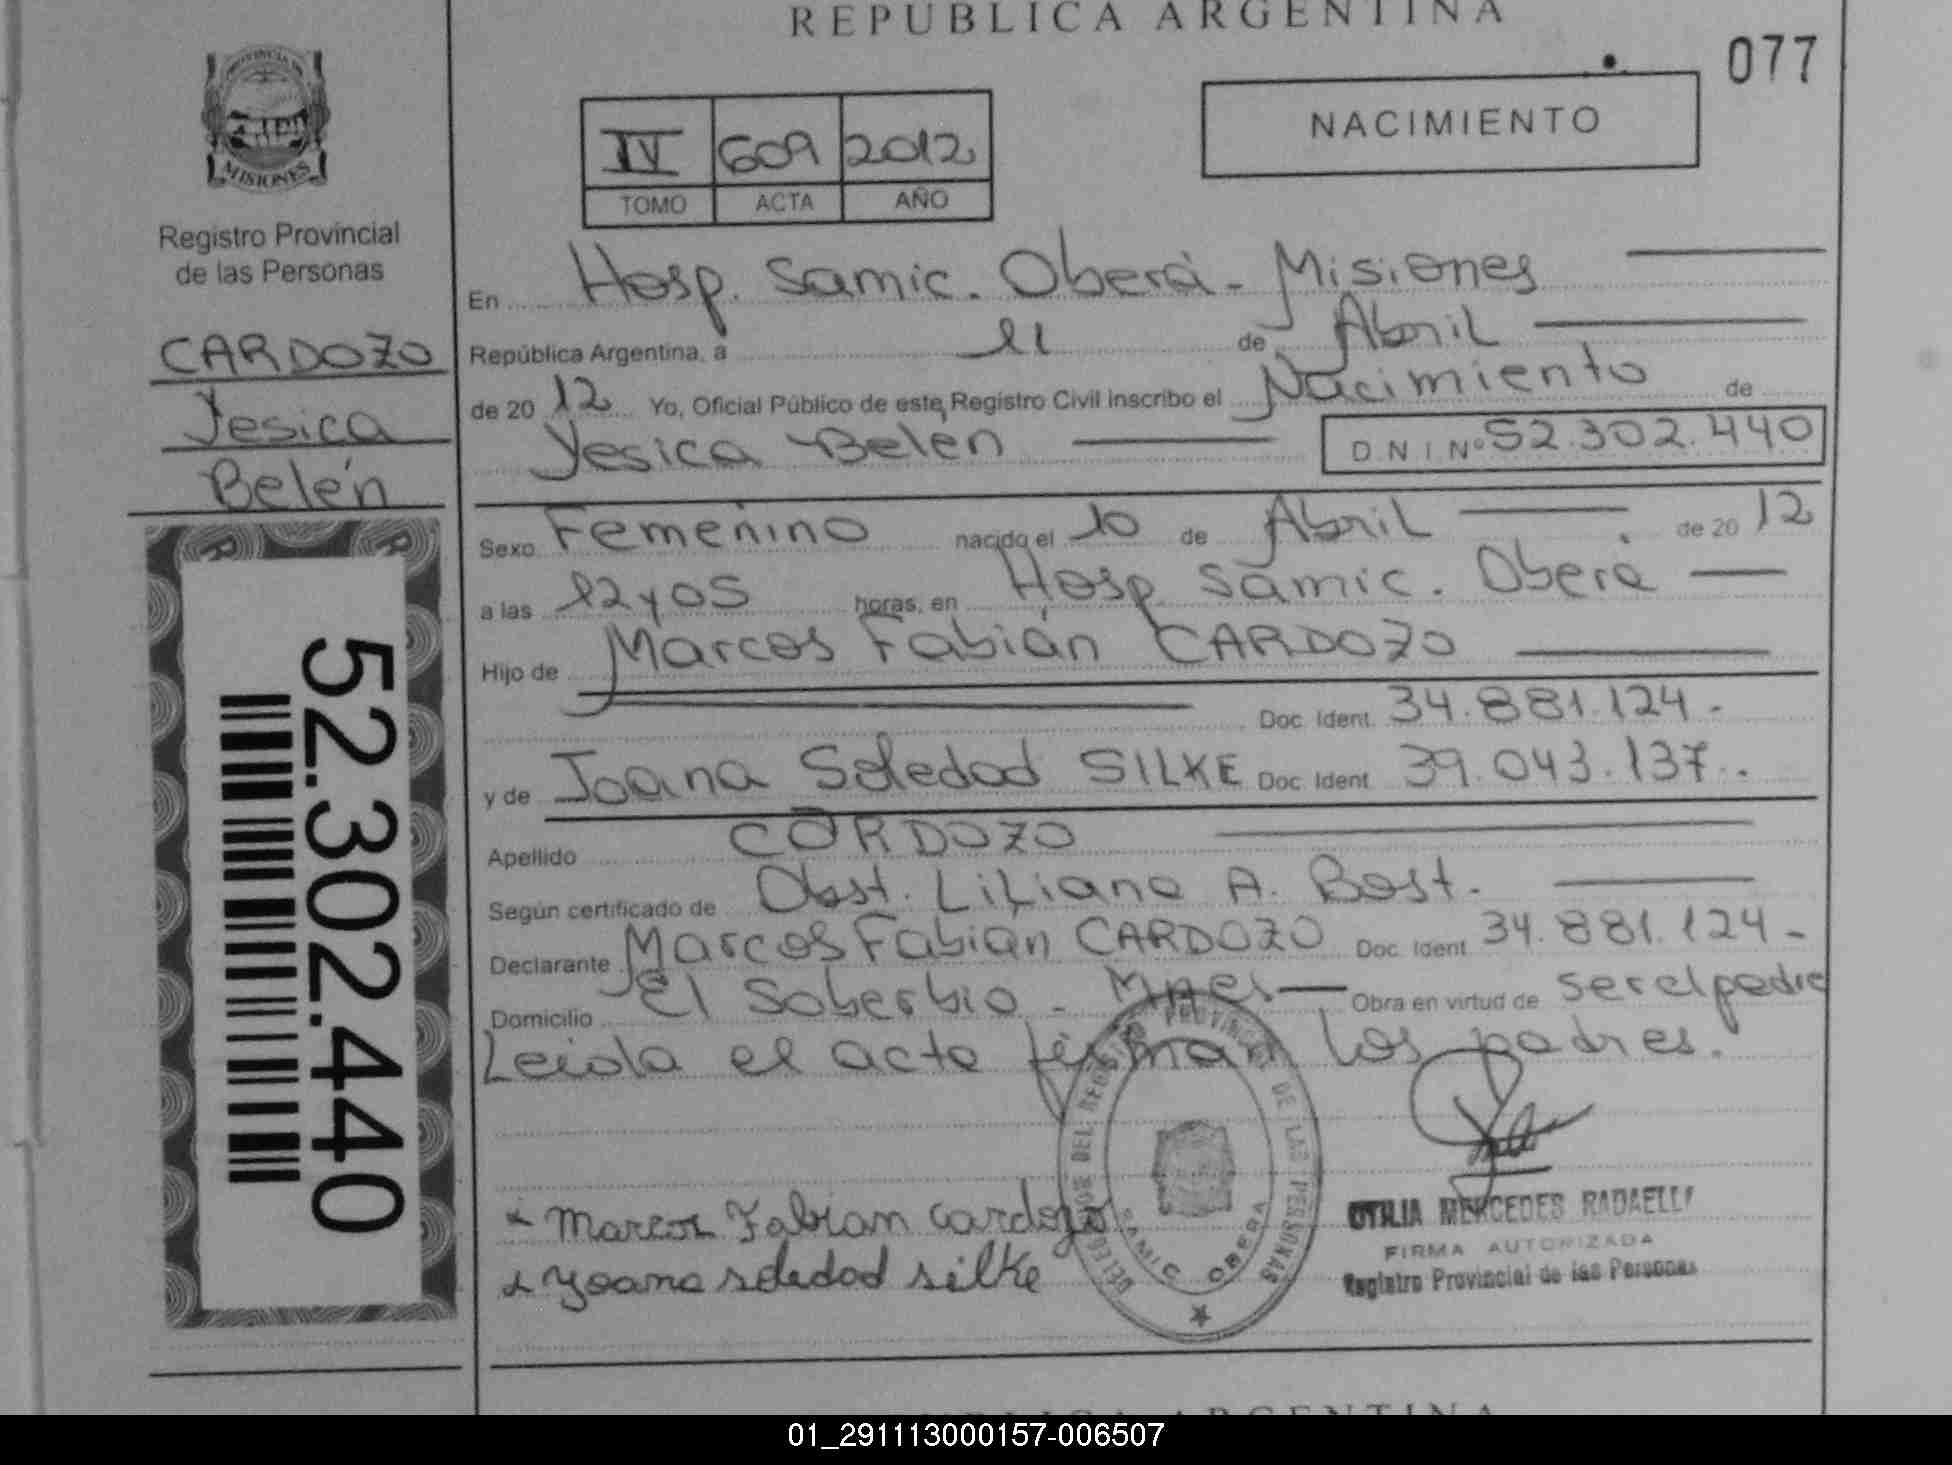 REPUBLICA ARGENTINA
077
PROVINCIA DE
MISIONES
Registro Provincial
de las Personas
CARDOZO
Yesica
Belén
52.302.440
IV 609 2012
TOMO ACTA AÑO
NACIMIENTO
En Hosp. Samic. Oberá - Misiones
República Argentina, a 11 de Abril
de 2012 Yo, Oficial Público de este Registro Civil inscribo el Nacimiento de
Yesica Belén D.N.I. Nº 52.302.440
Sexo Femenino nacido el 10 de Abril de 2012
a las 12 y 05 horas, en Hosp Samic. Oberá
Hijo de Marcos Fabián CARDOZO
Doc. Ident. 34.881.124.
y de Joana Soledad SILKE Doc. Ident. 39.043.137.
Apellido CARDOZO
Según certificado de Obst. Liliana A. Bost.
Declarante Marcos Fabián CARDOZO Doc. Ident. 34.881.124
Domicilio El Soberbio - Mnes Obra en virtud de ser el padre
Leida el acta firman los padres.
Marcos Fabian Cardozo
Yoana soledad silke
DELEGACION DEL REGISTRO PROVINCIAL DE LAS PERSONAS
SAMIC OBERA
OTILIA MERCEDES RADAELLI
FIRMA AUTORIZADA
Registro Provincial de las Personas
REPUBLICA ARGENTINA
01_291113000157-006507